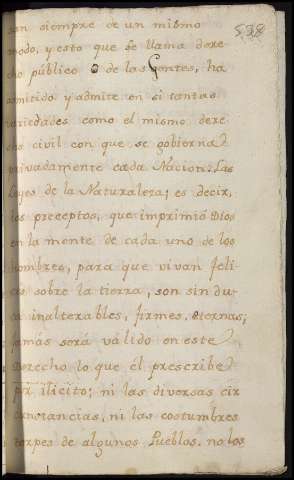 598
son siempre de un mismo
modo, y esto que se llama dere-
cho público o de las Gentes, ha
admitido y admite en si tantas
variedades como el mismo dere-
cho civil con que se gobierna
privadamente cada Nacion. Las
Leyes de la Naturaleza; es decir,
los preceptos, que imprimió Dios
en la mente de cada uno de los
hombres, para que vivan feli-
ces sobre la tierra, son sin du-
da inalterables, firmes, eternas;
jamas será válido en este
Derecho lo que él prescribe
por ilicito; ni las diversas cir
cunstancias, ni las costumbres
torpes de algunos Pueblos, no los